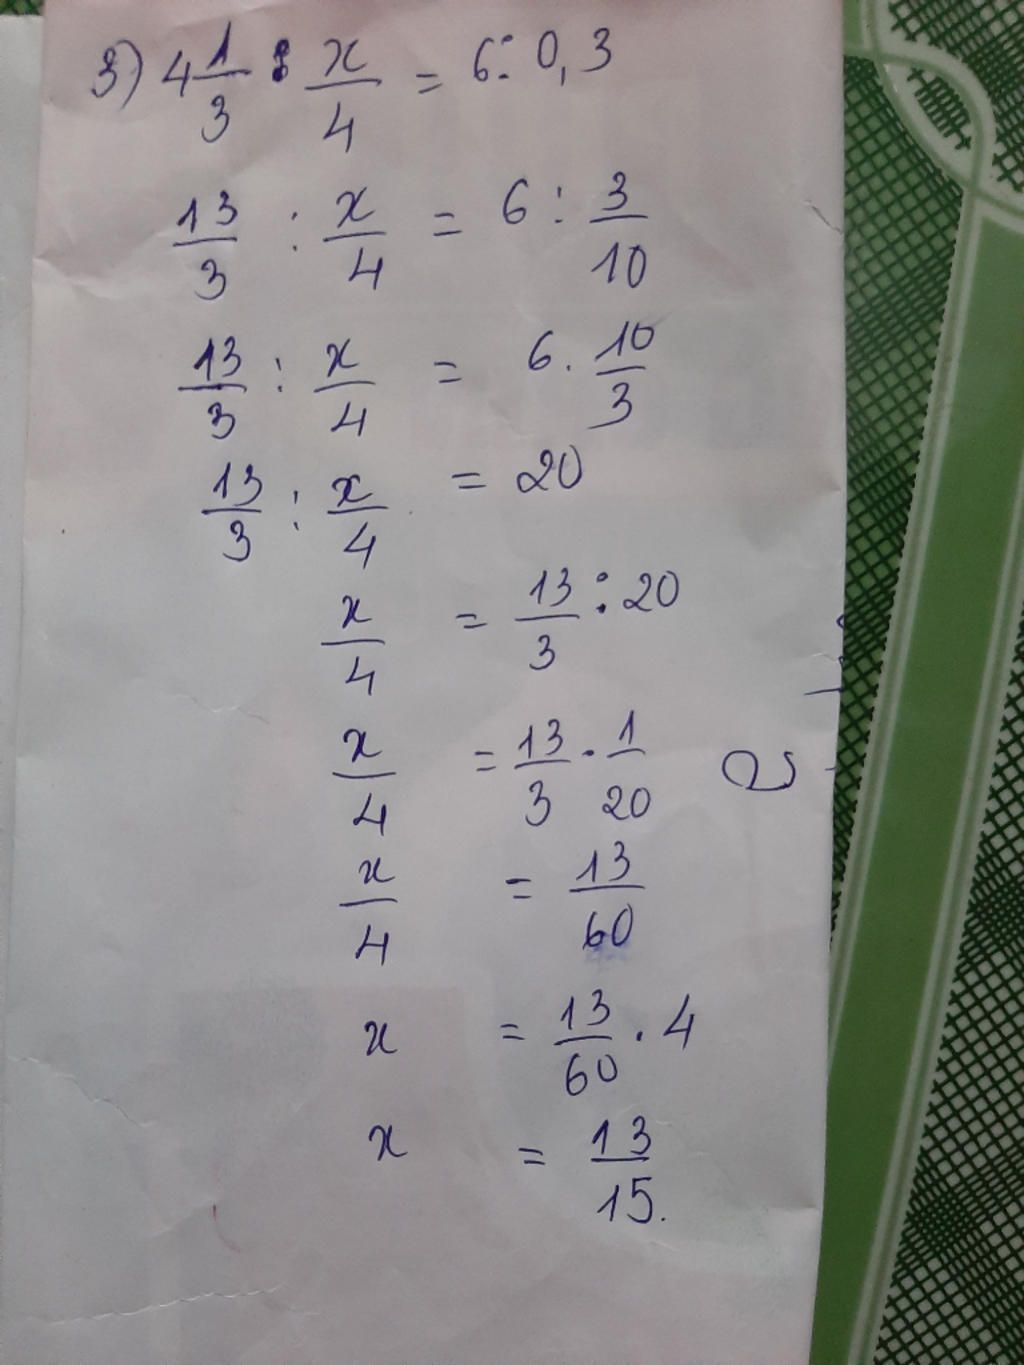 3) 4 1/3 : x/4 = 6 : 0,3
13/3 : x/4 = 6 : 3/10
13/3 : x/4 = 6 . 10/3
13/3 : x/4 = 20
x/4 = 13/3 : 20
x/4 = 13/3 . 1/20
x/4 = 13/60
x = 13/60 . 4
x = 13/15.